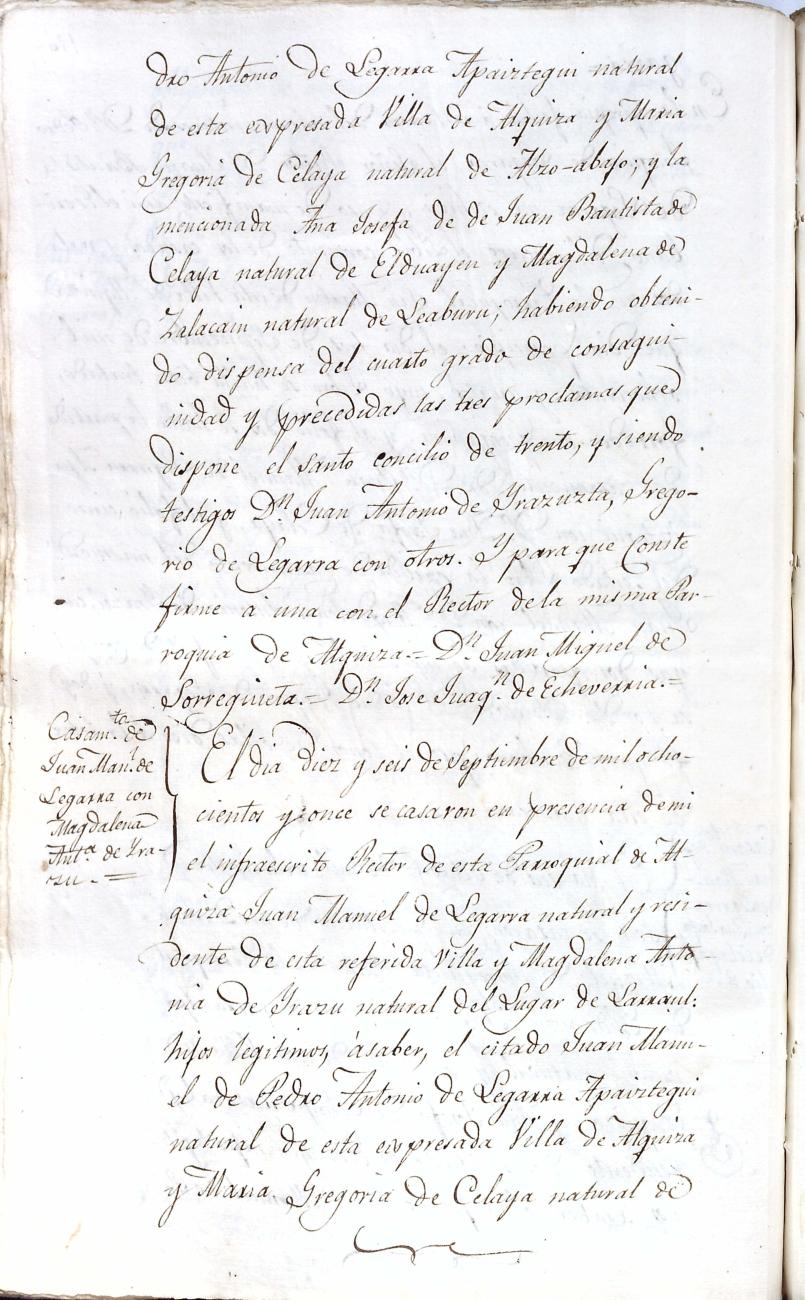 dro Antonio de Legarra Apaiztegui natural
de esta expresada Villa de Alquiza y Maria
Gregoria de Celaya natural de Alzo-abajo; y la
mencionada Ana Josefa de de Juan Bautista de
Celaya natural de Elduayen y Magdalena de
Zalacain natural de Leaburu; habiendo obteni-
do dispensa del cuarto grado de consagui-
nidad y precedidas las tres proclamas que
dispone el santo concilio de trento, y siendo
testigos Dn. Juan Antonio de Yrazuzta, Grego-
rio de Legarra con otros. Y para que Conste
firme á una con el Rector de la misma Par-
roquia de Alquiza.= Dn. Juan Miguel de
Sorreguieta.= Dn. Jose Juaqn. de Echeverria.=
Casamto. de
Juan Manl. de
Legarra con
Magdalena
Anta. de Yra-
zu.=
El dia diez y seis de Septiembre de mil ocho-
cientos y once se casaron en presencia de mi
el infraescrito Rector de esta Parroquial de Al-
quiza Juan Manuel de Legarra natural y resi-
dente de esta referida Villa y Magdalena Anto-
nia de Yrazu natural del Lugar de Larraul:
hijos legitimos, á saber, el citado Juan Manu-
el de Pedro Antonio de Legarra Apaiztegui
natural de esta expresada Villa de Alquiza
y Maria Gregoria de Celaya natural de